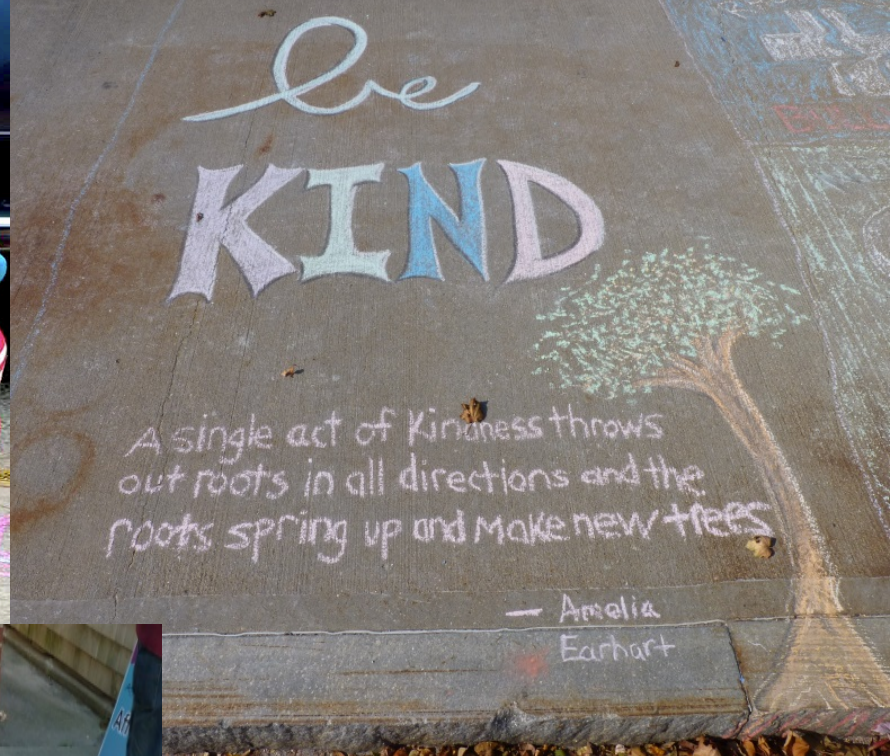 be
KIND
A single act of kindness throws
out roots in all directions and the
roots spring up and make new trees
— Amelia
Earhart